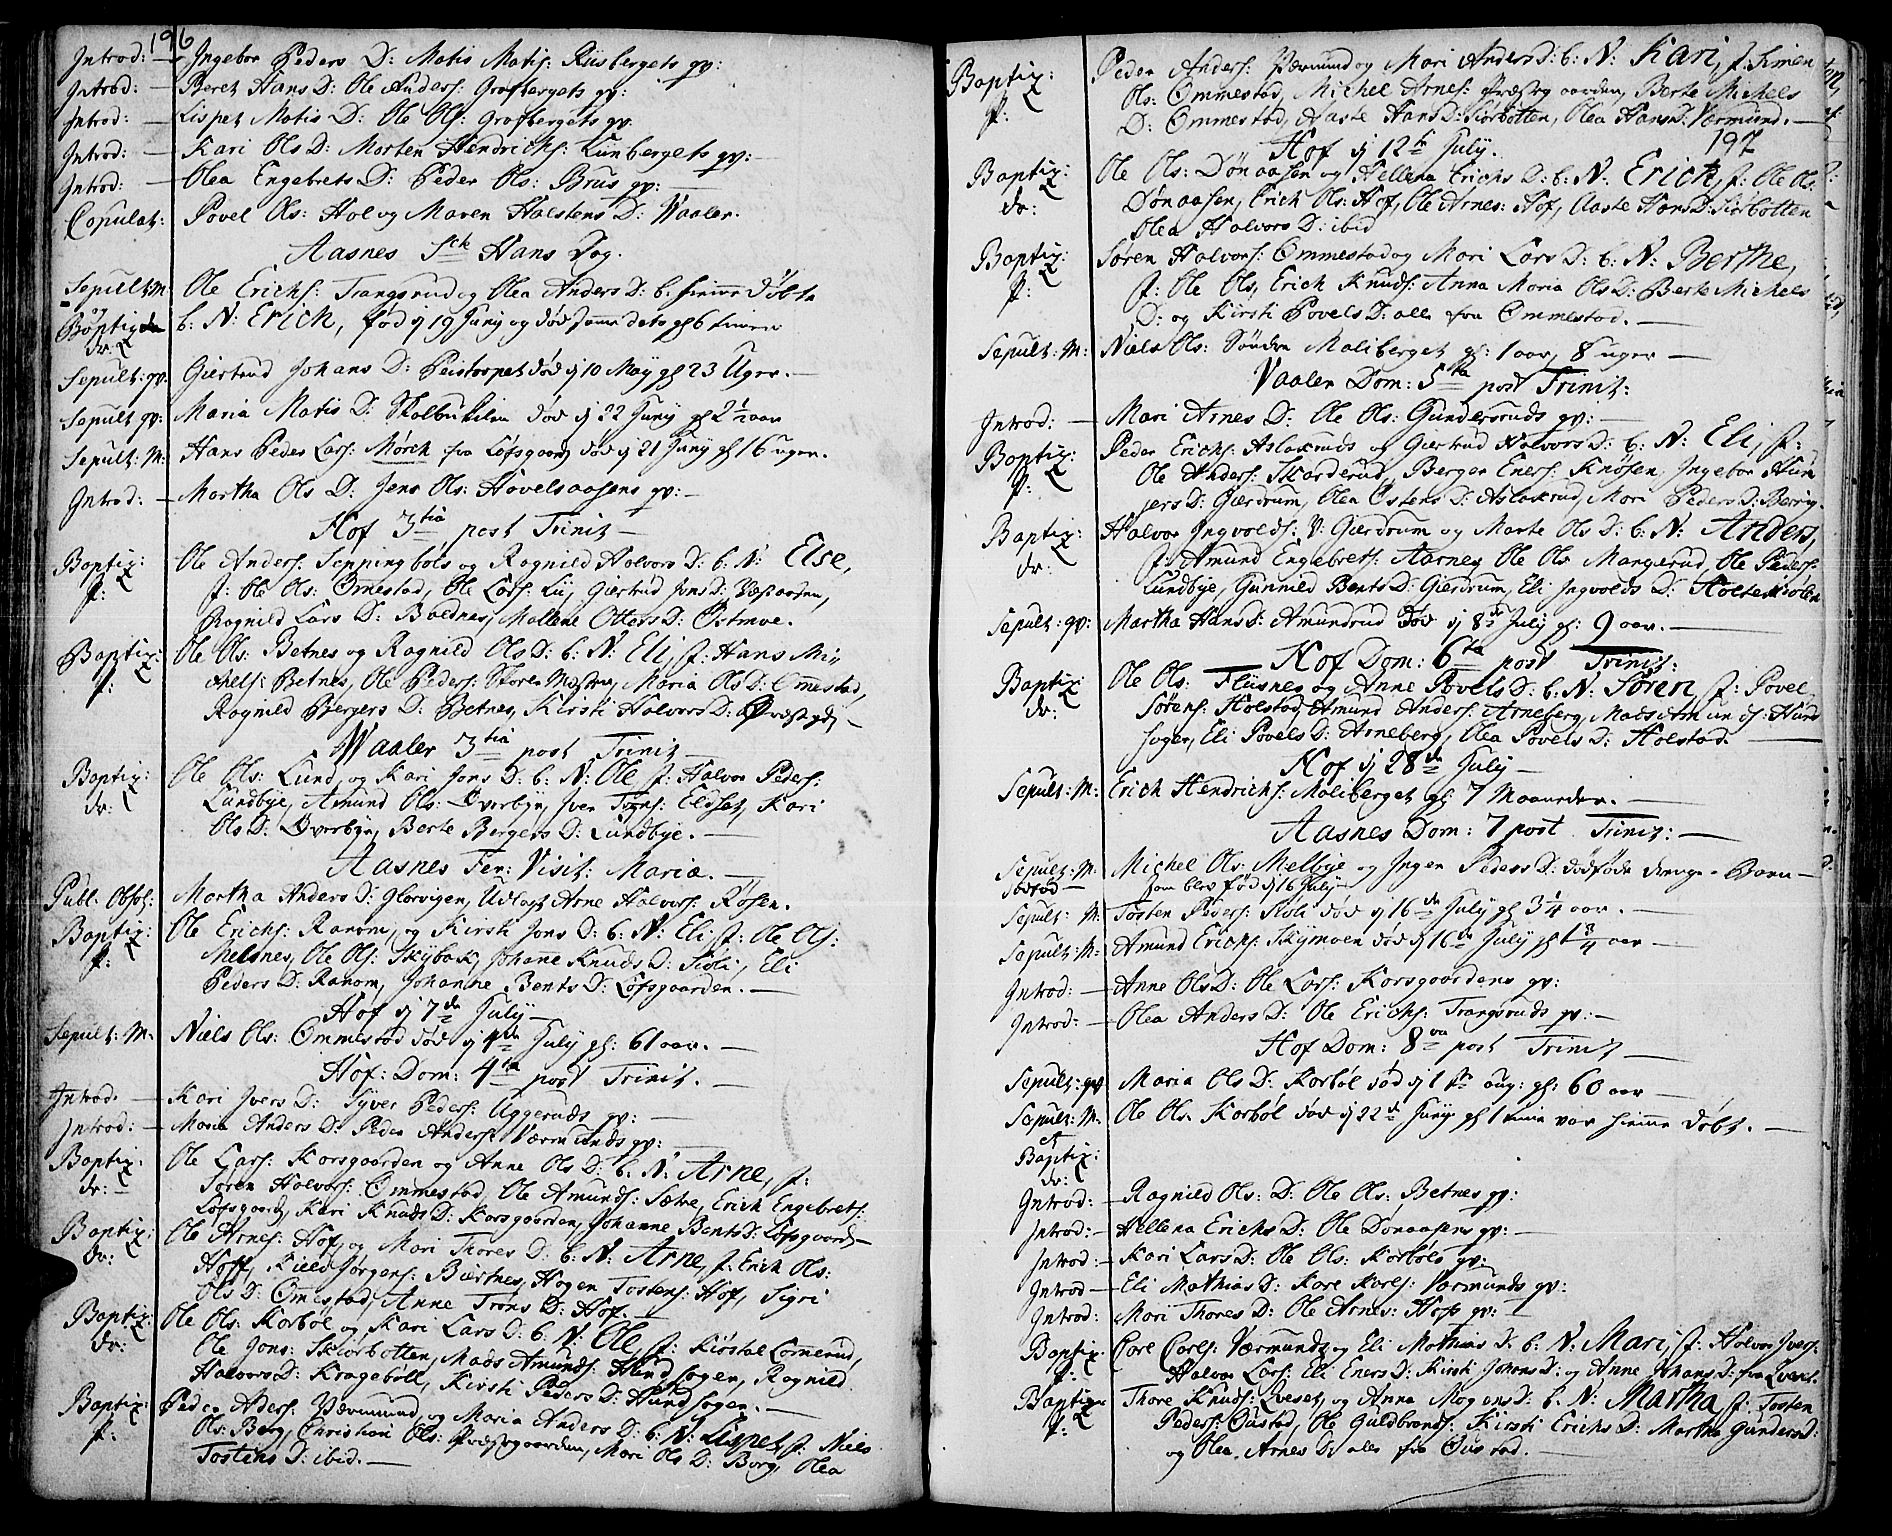 196
Introd: — Ingebor Peders D: Matis Matis: Riisbergets qv:
Introd: — Beret Hans D: Ole Anders: Grafbergets qv:
Introd: — Lispet Matis D: Ole Ols: Grafbergets qv:
Introd: — Kari Ols D: Morten Hendrichs: Lunbergets qv: —
Introd: — Olea Engebrets D: Peder Ols: Brus qv: —
Copulat: Povel Ols: Hol og Maren Halstens D: Vaaler.
Aasnes Sct Hans Dag.
Sepult: M: Ole Erichs: Trangsrud og Olea Anders D: b. hiemme døbte
og Baptiz: b: N: Erich, fød d 19 Junj og død samme dets gl 6 timer
dr:
Sepult: qv. Giertrud Johans D: Peistorpet død d 10 Maij gl 23 Uger. —
Sepult qv: Maria Matis D: død d 22 Junj gl 2½ aar
Sepult: M: Hans Peder Lars: Mørch fra Løfsgaard død d 21 Junj gl 16 uger.
Introd: — Martha Ols D: Jens Ols: Hovelsaasens qv: —
Hof 3tia post Trinit —
Baptiz: Ole Anders: Seppingbols og Ragnild Halvors D: b. N: Else,
p: f: Ole Ols: Ommestad, Ole Lars: Lii, Giertrud Jons D: Væsaarden,
Ragnild Lars D: Baldnes, Mallene Otters D: Østmoe. —
Baptiz: Ole Ols: Betnes og Ragnild Ols D: b: N: Eli, f: Hans Mi,,
p: chels: Betnes, Ole Peders: Maria Ols D: Ommestad,
Ragnild Bergers D: Betnes, Kirsti Halvors D: Præstgd —
Vaaler 3tia post Trinit —
Baptiz: Ole Ols: Lund, og Kari Jons D: b: N: Ole f: Halvor Peders:
dr: Lundbye, Amund Ols: Overbyn, Sven Eldset, Kari
Ols D: Overbyn, Berte Bergers D: Lundbye. —
Aasnes Fer: Visit: Mariæ. —
Publ. Absol: Martha Anders D: Glorvigen, Udlagt Arne Halvors: Røsen.
Baptiz: Ole Erichs: Ranom, og Kirsti Jons D: b: N: Eli, f: Ole Ols:
p: Melsnes, Ole Ols: Skybak, Johane Knuds D: Sioli, Eli
Peders D: Ranom, Johanne Bents D: Løfsgaarden. —
Hof d 7de July —
Sepult: M: Niels Ols: Ommestad død d 4de July gl: 61 aar. —
Hof: Dom: 4ta post Trinit. —
Introd. — Kari Ivers D: Syver Peders: Uggeruds qv: —
Introd: — Maria Anders D: Peder Anders: Værmunds qv: —
Baptiz: Ole Lars: Korsgaarden og Anne Ols D: b: N: Arne, f:
dr: — Søren Halvors: Ommestad, Ole Amunds: Sætre, Erich Engebrets:
Løfsgaard, Kari Knuds D: Korsgaarden, Johanne Bents D: Løfsgaard —
Baptiz: Ole Arnes: Hof, og Mari Thores D: b: N: Arne, f: Erich Ols:
dr: Hoff, Kield Jørgens: Biertnes, Hagen Tostens: Hof, Sigri
Ols D: Ommestad, Anne Trons D: Hof. —
Baptiz: Ole Ols: Korbøl og Kari Lars D: b: N: Ole, f: Kiøstel Lømerud,
dr: Ole Jons: Skiorbotten, Mads Amunds: Hundsogen, Ragnild
Halvors D: Kragebøll, Kirsti Peders D: Hundsogen. —
Baptiz: Peder Anders: Værmund og Maria Anders D: b: N: Lispet f: Niels
p: Ols: Berg, Christian Ols: Præstegaarden, Mari Ols D: Borg, Olea
Tostens D: ibid. —
Baptiz: Peder Anders: Værmund og Mari Anders D: b: N: Kari, f: Simen
p: Ols: Ommestad, Michel Arnes: Præstegaarden, Berte Michels
D: Ommestad, Aaste Hans D: Skorbotten, Olea Hans D: Værmund. —
Hof d 12te July. 197
Baptiz: Ole Ols: Dønaasen og Hellena Erichs D: b: N: Erich, f: Ole Ols:
dr: Dønaasen, Erich Ols: Hof, Ole Arnes: Hof, Aaste Hans D: Skorbotten
Olea Halvors D: ibid
Baptiz: Søren Halvors: Ommestad og Mari Lars D: b: N: Berthe,
p: f: Ole Ols, Erich Knuds: Anna Maria Ols D: Berte Michels
D: og Kirsti Povels D: alle fra Ommestad. —
Sepult: M: Niels Ols: Søndre Maliberget gl: 1 aar, 8 uger —
Vaaler Dom: 5ta post Trinit:
Introd: — Mari Arnes D: Ole Ols: Gundersruds qv: —
Baptiz: Peder Erichs: Aslakruds og Giertrud Halvors D: b: N: Eli, f:
p: Ole Anders: Skarderud, Berger Eners: Knøsen, Ingebor Gun
jers D: Gierdrum, Olea Østens D: Aslakrud, Mari Peders D: Berrig.
Baptiz: Halvor Ingvolds: V: Gierdrum og Marte Ols D: b: N: Anders,
dr: f: Amund Engebrets: Aarnes, Ole Ols Mangerud, Ole Peders:
Lundbye, Gunnild Bents D: Gierdrum, Eli Ingvolds D: Holtekiølen
Sepult: qv: Martha Hans D: Amundrud død d 8de July gl: 9 aar. —
Hof Dom: 6ta post Trinit:
Baptiz: Ole Ols: Flisnes og Anne Povels D: b: N: Søren f: Povel
dr: Sørens: Holstad, Amund Anders: Arneberg, Mads Amunds: Hund
soger, Eli Povels D: Arneberg, Olea Povels D: Holstad. —
Hof d 28de July —
Sepult: M: Erich Hendrichs: Maliberget gl 7 Maaneder. —
Aasnes Dom: 7 post Trinit: —
Sepult: M: Michel Ols: Melbye og Inger Peders D: dødføde drenge-Barn —
dødfød — som blev fød d 16 July
Sepult: M: Tosten Peders: Sioli død d 16de July gl 3¼ aar. —
Sepult: M: Amund Erichs: Skymoen død d 16de July gl 1¾ aar —
Introd: — Anne Ols D: Ole Lars: Korsgaardens qv:
Introd: — Olea Anders D: Ole Erichs: Trangsruds qv: —
Hof Dom: 8va post Trinit —
Sepult: qv Maria Ols D: Korbøl død d 1ste Aug: gl: 60 aar —
Sepult: M: Ole Ols: Korbøl død d 22de Junj gl 1 var hiemme døbt. —
et
Baptiz:
dr:
Introd: — Ragnild Ols: D: Ole Ols: Betnes qv:
Introd: — Hellena Erichs D: Ole Dønaasens qv: —
Introd: — Kari Lars D: Ole Ols: Korbøls qv:
Introd — Eli Mathias D: Kore Korls: Værmunds qv:
Introd: Mari Thores D: Ole Arnes: Hoffs qv: —
Baptiz: Core Corls: Værmunds og Eli Mathias D: b: N: Mari, f: Halvor Ivers:
p: Halvor Lars: Eli Eners D: Kirsti Johans D: og Anne Johans D: fra Qveset.
Baptiz: Thore Knuds: Qveset, og Anna Mogens D: b: N: Martha, f: Tosten
p: Peders: Oustad, Ole Guldbrands: Kirsti Erichs D: Martha Gunders D:
og Olea Arnes D: alle fra Oustad. —